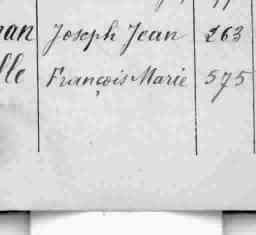 nan Joseph Jean 263
lle François Marie 575